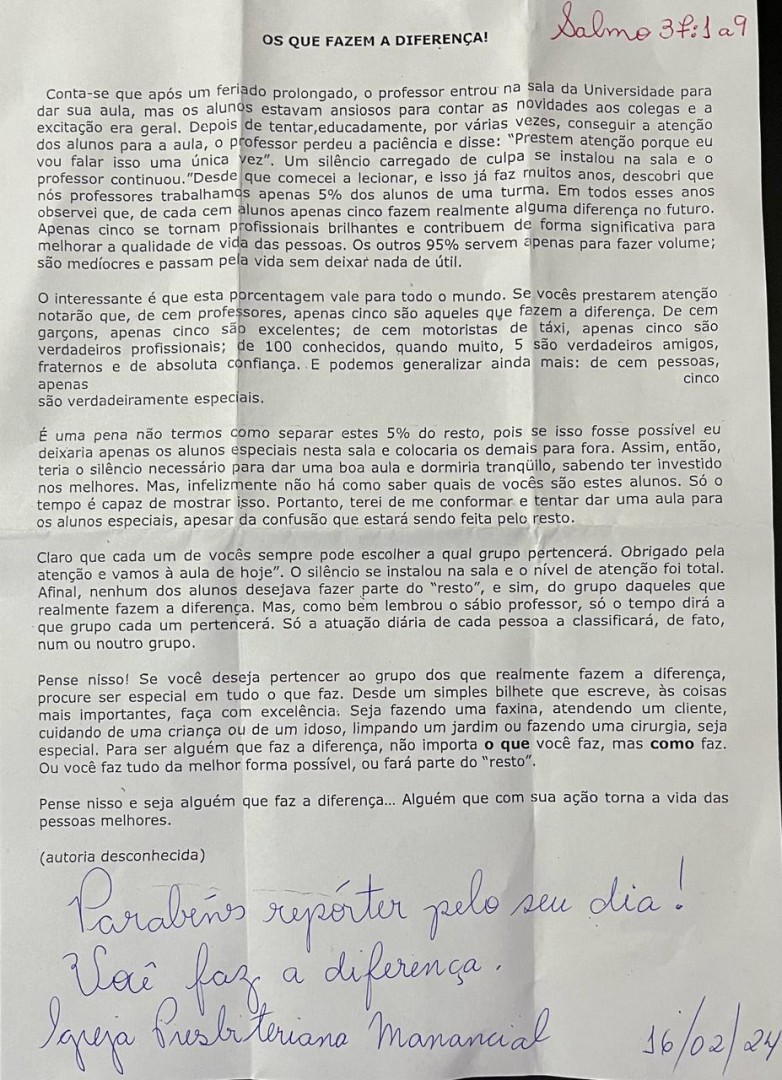 OS QUE FAZEM A DIFERENÇA!
Salmo 37:1 a 9
Conta-se que após um feriado prolongado, o professor entrou na sala da Universidade para
dar sua aula, mas os alunos estavam ansiosos para contar as novidades aos colegas e a
excitação era geral. Depois de tentar,educadamente, por várias vezes, conseguir a atenção
dos alunos para a aula, o professor perdeu a paciência e disse: "Prestem atenção porque eu
vou falar isso uma única vez". Um silêncio carregado de culpa se instalou na sala e o
professor continuou."Desde que comecei a lecionar, e isso já faz muitos anos, descobri que
nós professores trabalhamos apenas 5% dos alunos de uma turma. Em todos esses anos
observei que, de cada cem alunos apenas cinco fazem realmente alguma diferença no futuro.
Apenas cinco se tornam profissionais brilhantes e contribuem de forma significativa para
melhorar a qualidade de vida das pessoas. Os outros 95% servem apenas para fazer volume;
são medíocres e passam pela vida sem deixar nada de útil.
O interessante é que esta porcentagem vale para todo o mundo. Se vocês prestarem atenção
notarão que, de cem professores, apenas cinco são aqueles que fazem a diferença. De cem
garçons, apenas cinco são excelentes; de cem motoristas de táxi, apenas cinco são
verdadeiros profissionais; de 100 conhecidos, quando muito, 5 são verdadeiros amigos,
fraternos e de absoluta confiança. E podemos generalizar ainda mais: de cem pessoas,
apenas cinco
são verdadeiramente especiais.
É uma pena não termos como separar estes 5% do resto, pois se isso fosse possível eu
deixaria apenas os alunos especiais nesta sala e colocaria os demais para fora. Assim, então,
teria o silêncio necessário para dar uma boa aula e dormiria tranqüilo, sabendo ter investido
nos melhores. Mas, infelizmente não há como saber quais de vocês são estes alunos. Só o
tempo é capaz de mostrar isso. Portanto, terei de me conformar e tentar dar uma aula para
os alunos especiais, apesar da confusão que estará sendo feita pelo resto.
Claro que cada um de vocês sempre pode escolher a qual grupo pertencerá. Obrigado pela
atenção e vamos à aula de hoje". O silêncio se instalou na sala e o nível de atenção foi total.
Afinal, nenhum dos alunos desejava fazer parte do "resto", e sim, do grupo daqueles que
realmente fazem a diferença. Mas, como bem lembrou o sábio professor, só o tempo dirá a
que grupo cada um pertencerá. Só a atuação diária de cada pessoa a classificará, de fato,
num ou noutro grupo.
Pense nisso! Se você deseja pertencer ao grupo dos que realmente fazem a diferença,
procure ser especial em tudo o que faz. Desde um simples bilhete que escreve, às coisas
mais importantes, faça com excelência. Seja fazendo uma faxina, atendendo um cliente,
cuidando de uma criança ou de um idoso, limpando um jardim ou fazendo uma cirurgia, seja
especial. Para ser alguém que faz a diferença, não importa o que você faz, mas como faz.
Ou você faz tudo da melhor forma possível, ou fará parte do "resto".
Pense nisso e seja alguém que faz a diferença... Alguém que com sua ação torna a vida das
pessoas melhores.
(autoria desconhecida)
Parabéns repórter pelo seu dia!
Você faz a diferença.
Igreja Presbiteriana Manancial
16/02/24